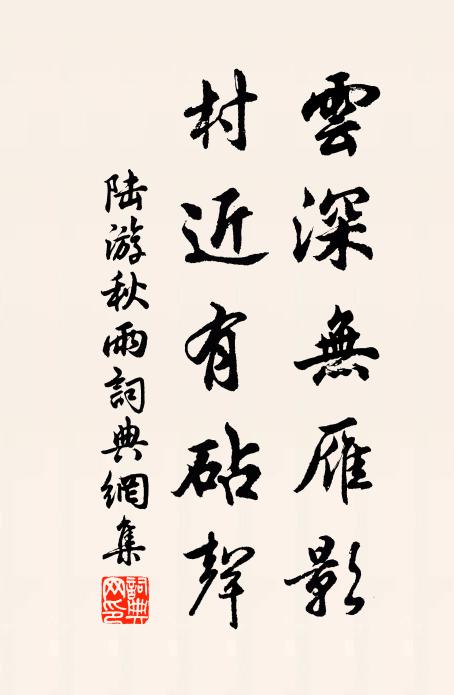 雲深無雁影
村近有砧聲
陸游秋雨詞典網集
詞典
网印